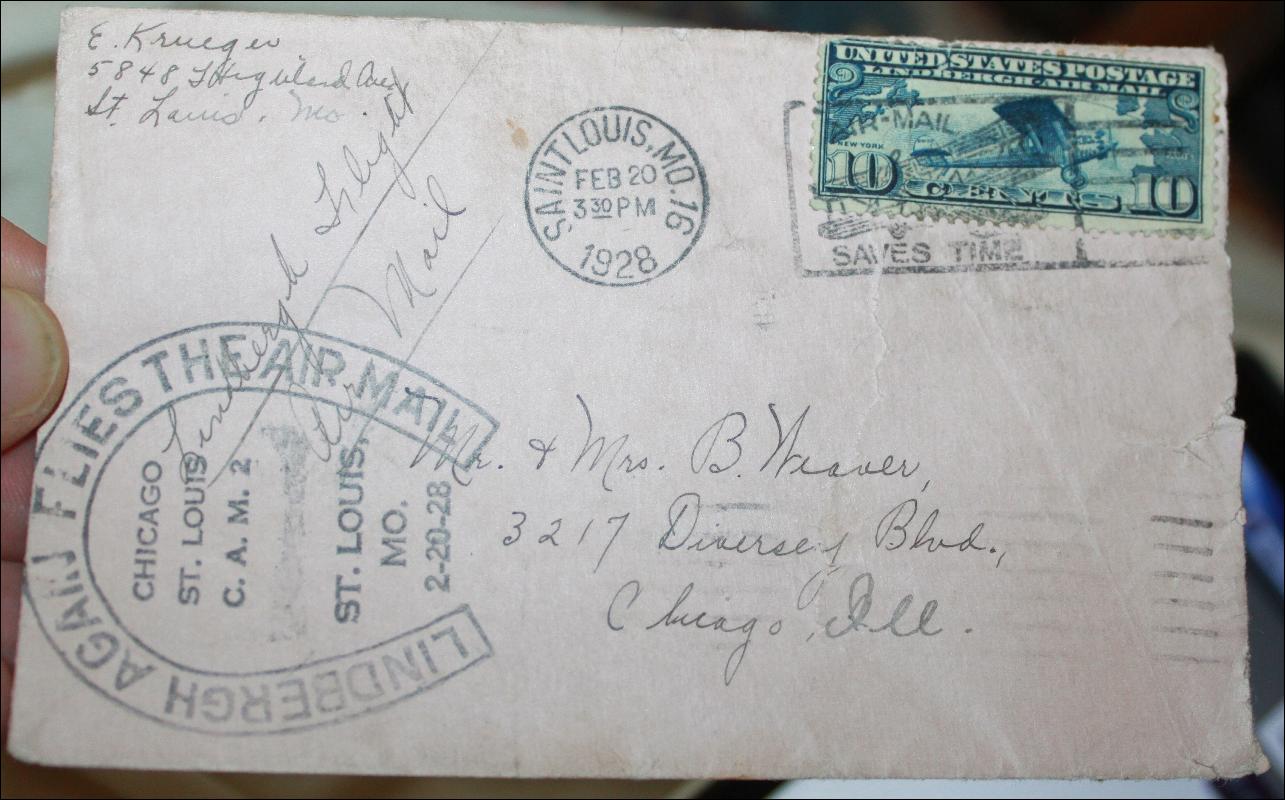 E. Krueger
5848 Highland Ave
St. Louis, Mo.
Lindbergh Flight
Air Mail
SAINT LOUIS, MO. 16
FEB 20
3 30 PM
1928
UNITED STATES POSTAGE
LINDBERGH AIR MAIL
NEW YORK
10 CENTS 10
AIR-MAIL
SAVES TIME
LINDBERGH AGAIN FLIES THE AIR MAIL
CHICAGO
ST. LOUIS
C. A. M. 2
ST. LOUIS,
MO.
2-20-28
Mr. & Mrs. B. Weaver,
3217 Diversey Blvd.,
Chicago, Ill.